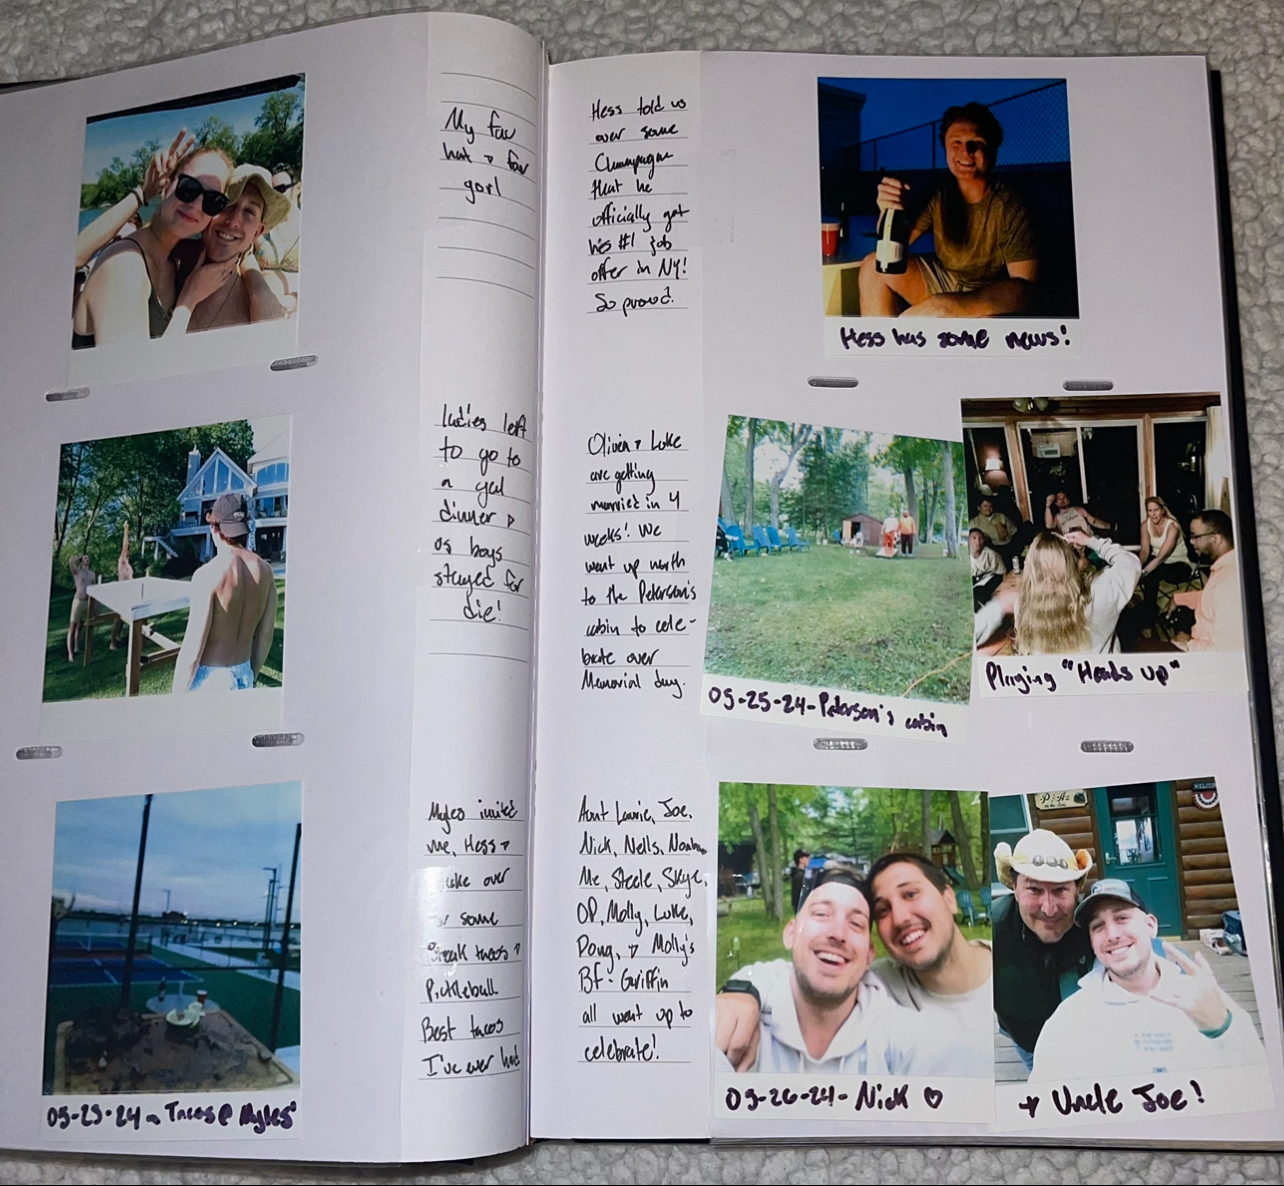 My fav
hat + fav
gorl
ladies left
to go to
a gal
dinner +
us boys
stayed for
die!
Myles invited
me, Hess +
Luke over
for some
Steak tacos +
Pickleball
Best tacos
I've ever had
05-23-24 - Tacos @ Myles'
Hess told us
over some
Champagne
that he
officially got
his #1 job
offer in NY!
So proud.
Hess has some news!
Olivia + Luke
are getting
married in 4
weeks! We
went up north
to the Peterson's
cabin to cele-
brate over
Memorial day.
05-25-24-Peterson's cabin
Playing "Heads Up"
Aunt Laurie, Joe,
Nick, Nells,
Me, Steele, Skye,
OP, Molly, Luke,
Doug, + Molly's
Bf - Griffin
all went up to
celebrate!
05-26-24- Nick ♡
+ Uncle Joe!